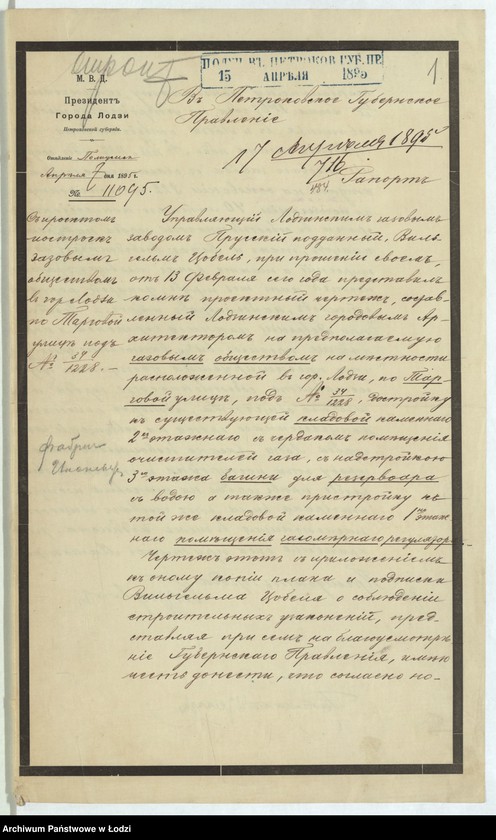 ПОЛУЧ. ВЪ ПЕТРОКОВ. ГУБ. ПР.
15 АПРѢЛЯ 1895
1
М. В. Д.
Президентъ
Города Лодзи
Петроковской губерніи.
Отдѣленіе
Апрѣля 7 дня 1895 г.
№ 11095.
Въ Петроковское Губернское
Правленіе
17 Апрѣля 1895
Рапортъ
Съ проэктомъ
построекъ
газовымъ
обществомъ
въ гор. Лодзи
по Тарговой
улицѣ подъ
№ 34/1228. –
Управляющій Лодзинскимъ газовымъ
заводомъ Прусскій подданный, Виль-
гельмъ Цобель, при прошеніи своемъ,
отъ 13 Февраля сего года представилъ
ко мнѣ проэктный чертежъ, состав-
ленный Лодзинскимъ городовымъ Ар-
хитекторомъ на предполагаемую
газовымъ обществомъ на мѣстности
расположенной въ гор. Лодзи, по Тар-
говой улицѣ, подъ № 34/1228, достройку
къ существующей кладовой каменнаго
2хъ этажнаго съ чердакомъ помѣщенія
очистителей газа, съ надстройкою
3го этажа башни для резервоара
съ водою а также пристройку къ
той же кладовой каменнаго 1но этаж-
наго помѣщенія газомѣрнаго регулятора.
Чертежъ этотъ съ приложеніемъ
къ оному копіи плана и подписки
Вильгельма Цобеля о соблюденіи
строительныхъ узаконеній, пред-
ставляя при семъ на благоусмотрѣ-
ніе Губернскаго Правленія, имѣю
честь донести, что согласно по-
Archiwum Państwowe w Łodzi